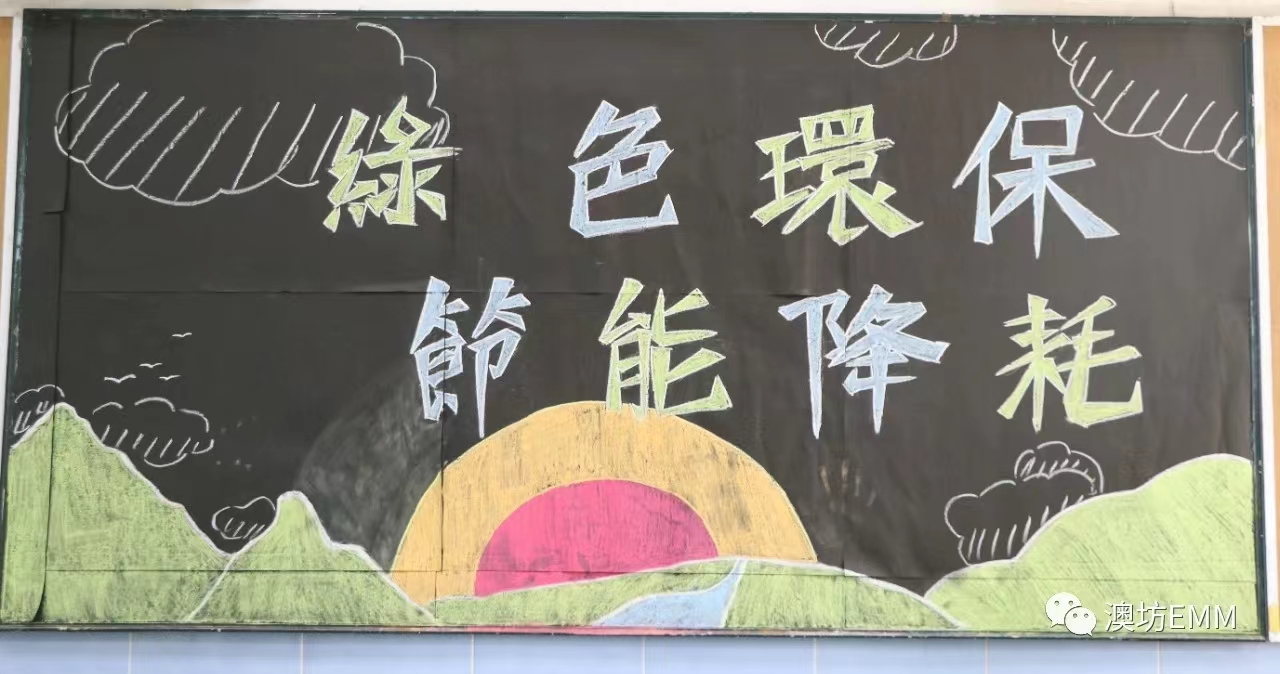 綠色環保
節能降耗
澳坊EMM